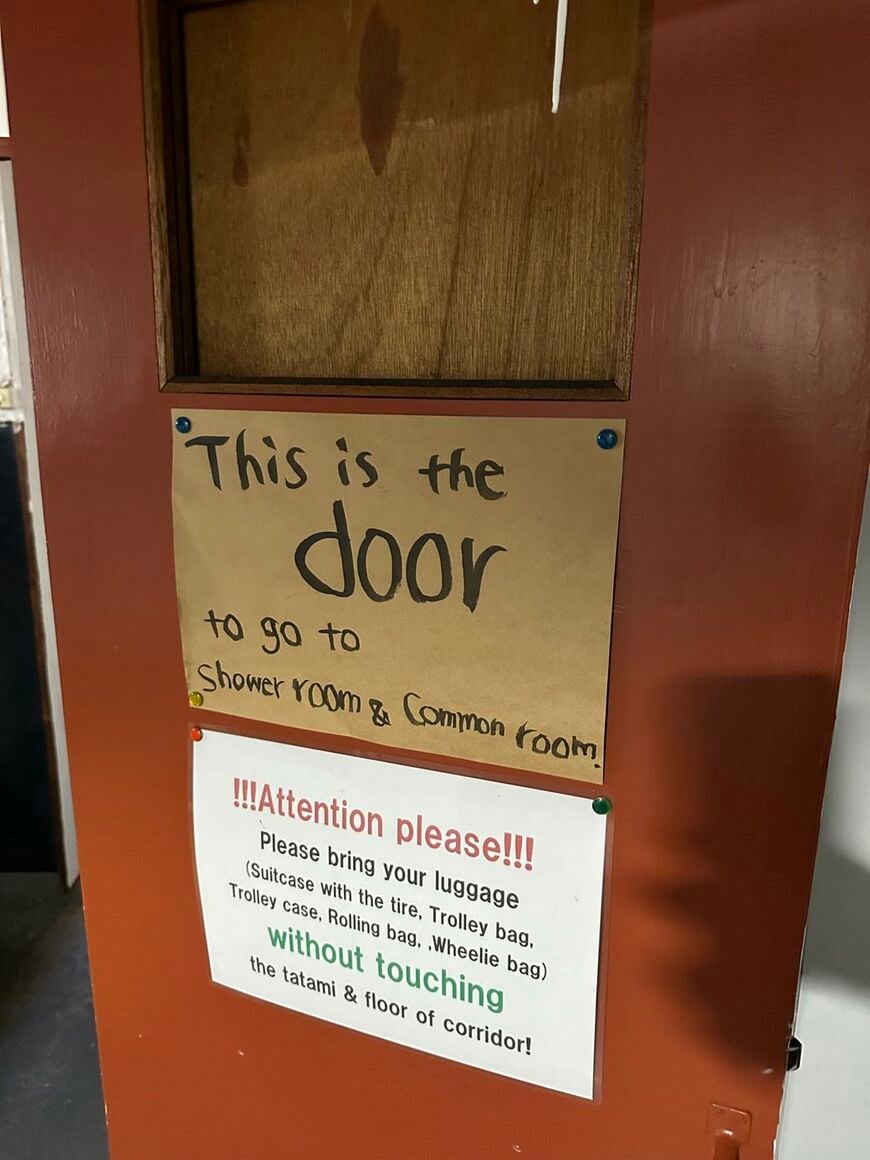 This is the
door
to go to
Shower room & Common room.
!!!Attention please!!!
Please bring your luggage
(Suitcase with the tire, Trolley bag,
Trolley case, Rolling bag, ,Wheelie bag)
without touching
the tatami & floor of corridor!